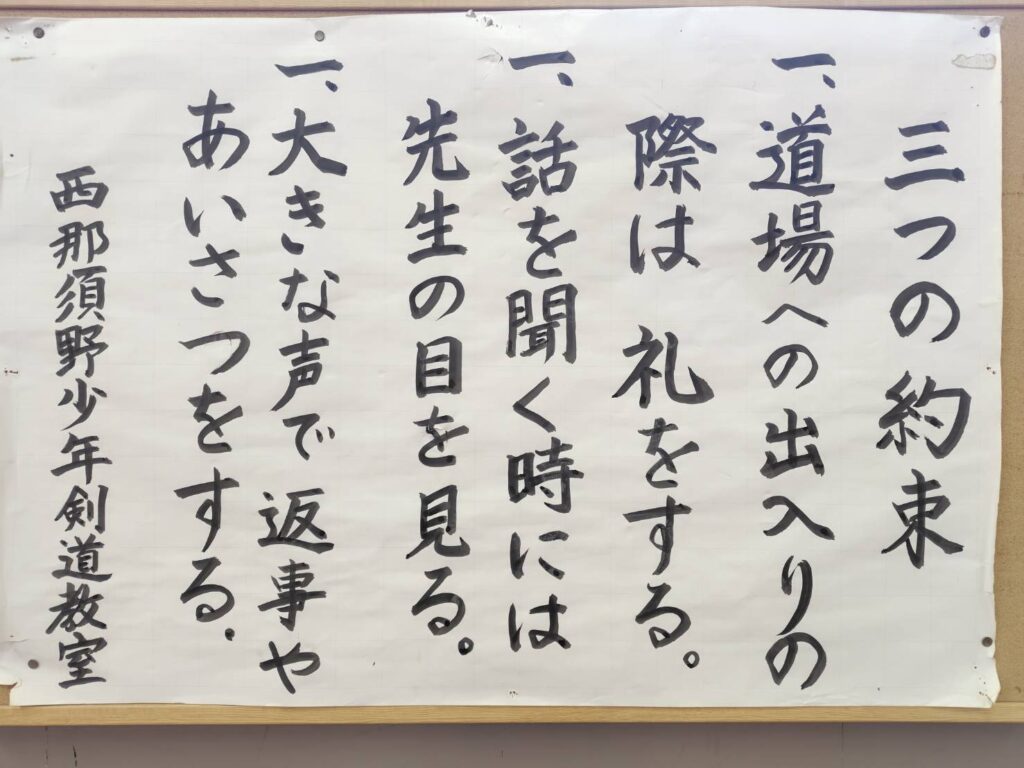 三つの約束
一、道場への出入りの
際は 礼をする。
一、話を聞く時には
先生の目を見る。
一、大きな声で 返事や
あいさつをする.
西那須野少年剣道教室